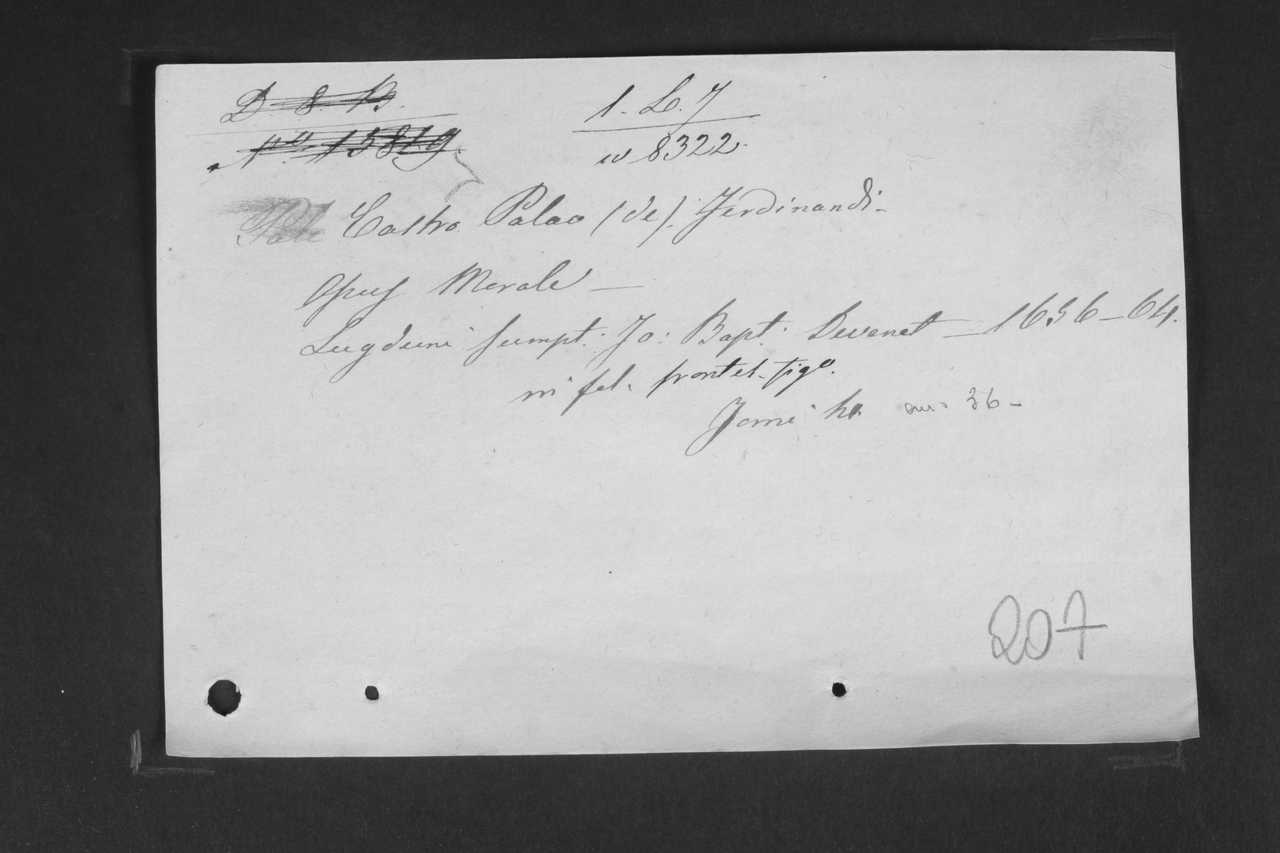 D 8 B. 1. L. 7
nº 15819. 8322.
Castro Palao (de) Ferdinandi-
Opus Morale —
Lugduni sumpt: Jo: Bapt: Devenet — 1656-64.
in fol. frontes. figº.
Tomi
207